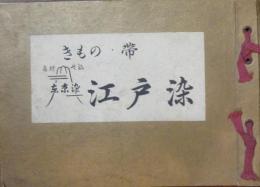 きもの・帯
東京染
江戸染